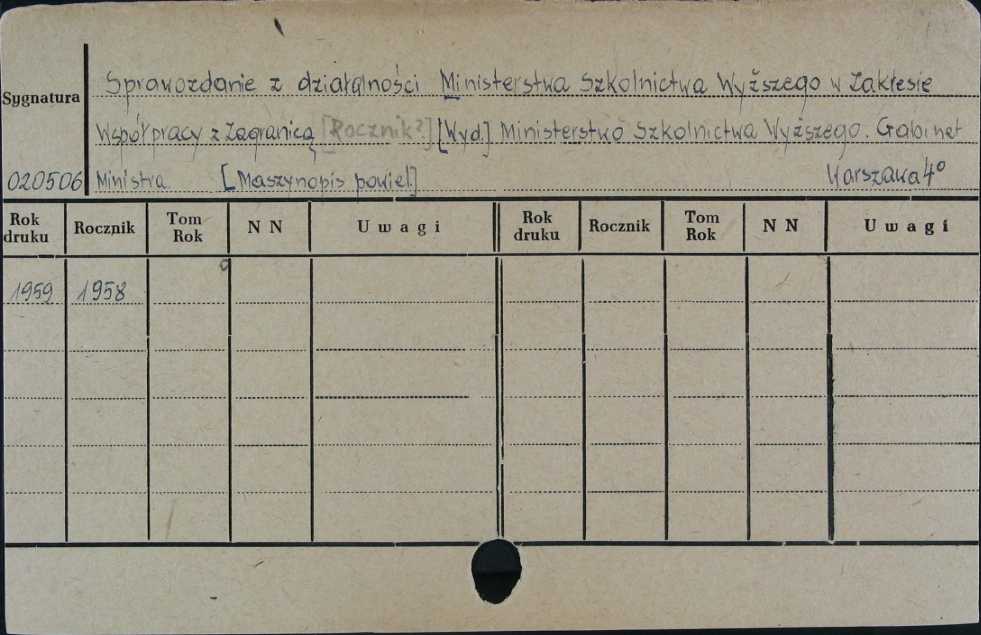 Sprawozdanie z działalności Ministerstwa Szkolnictwa Wyższego w zakresie
Sygnatura
Współpracy z Zagranicą [Rocznik?] [Wyd.] Ministerstwo Szkolnictwa Wyższego. Gabinet
020506 Ministra. [Maszynopis powiel.] Warszawa 4°
Rok druku Rocznik Tom Rok N N Uwagi Rok druku Rocznik Tom Rok N N Uwagi
1959 1958